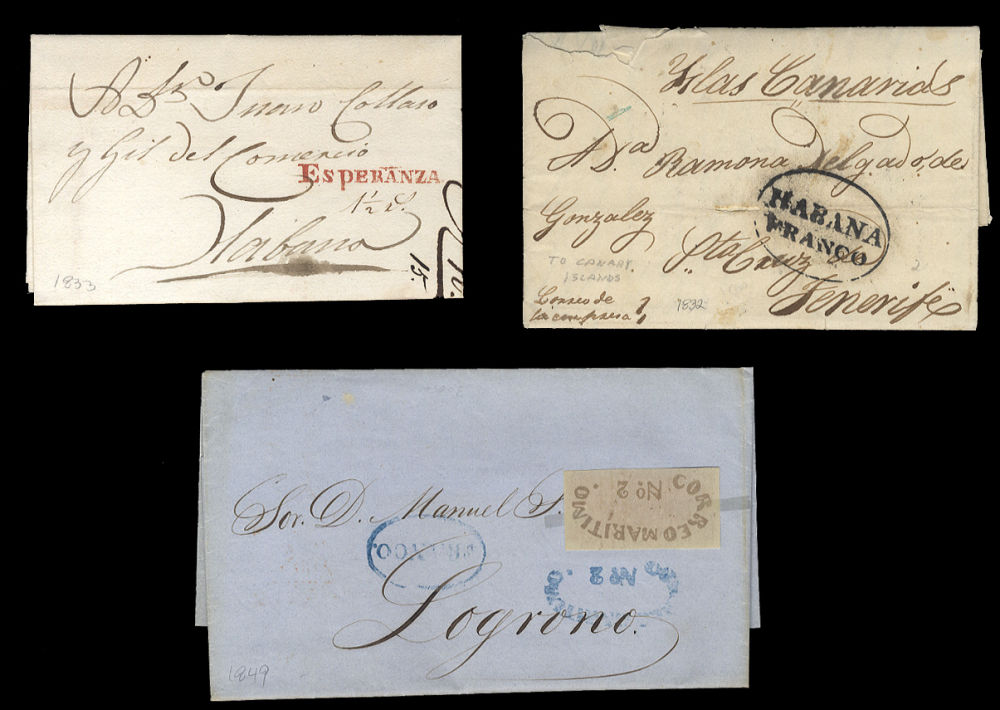 A Dn. Juan Collaso
y Gil del Comercio
ESPERANZA
1½ rs.
Habana
1833
15.
Yslas Canarias
A Da Ramona Delgado, de
Gonzalez
HABANA
FRANCO
Sta Cruz de
TO CANARY
ISLANDS
Tenerife
Correo de
la empresa
1832
2
Sor. D. Manuel S.
CORREO MARITIMO
No. 2.
FRANCO.
No. 2.
Logrono.
1849